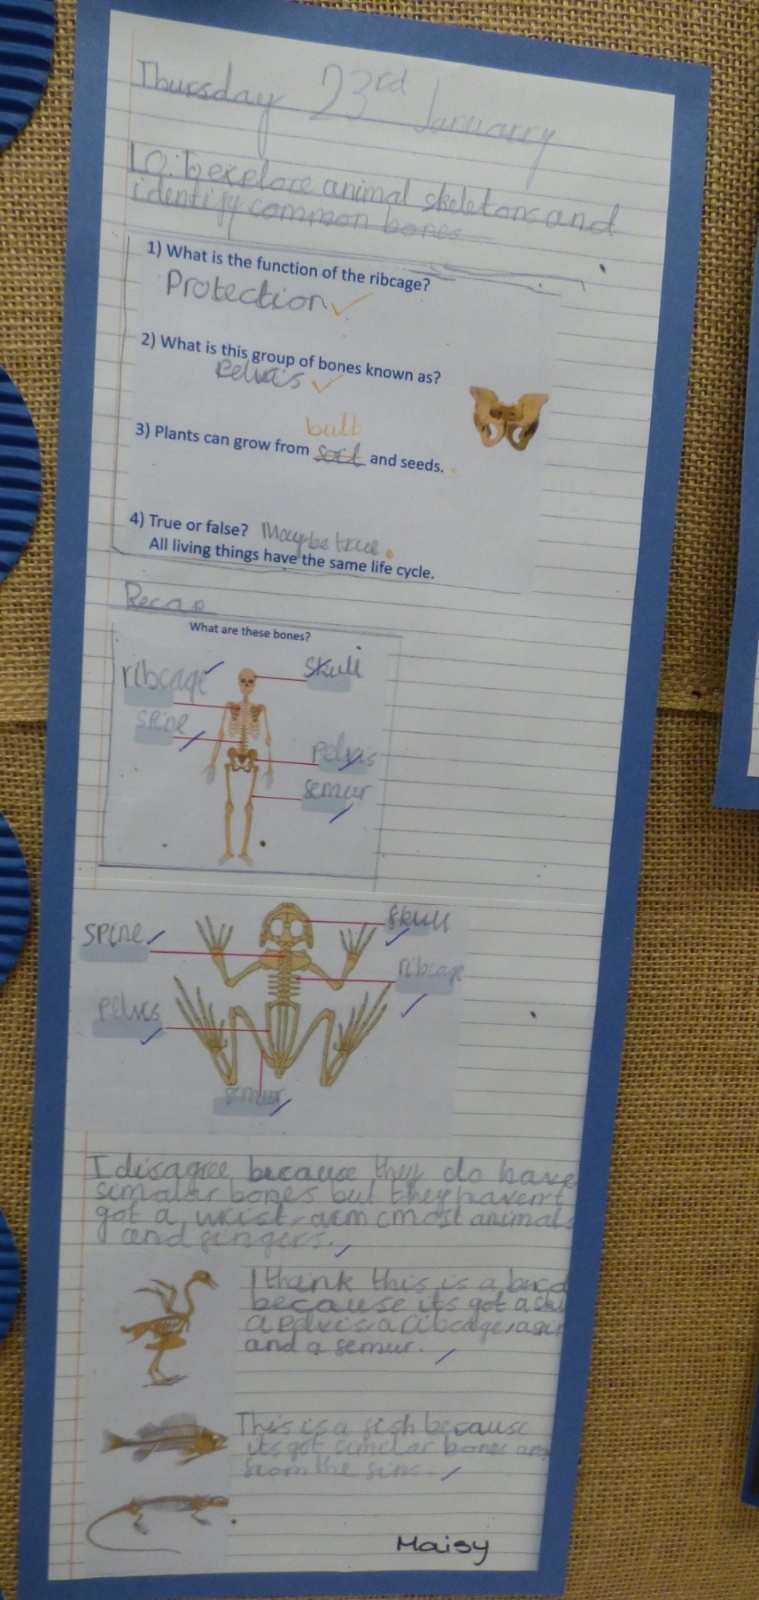 Thursday 23rd Januarry
LO: To explore animal skeletons and
identify common bones
1) What is the function of the ribcage?
Protection
2) What is this group of bones known as?
Pelvais
bulb
3) Plants can grow from soil and seeds.
4) True or false? Maybe true
All living things have the same life cycle.
Recap
What are these bones?
ribcage
skull
spine
pelvis
semur
spine
skull
ribcage
pelvis
semur
I disagree because they do have
similar bones but they havent
got a wrist, arm (most animals
and fingers.
I think this is a bird
because its got a
a pelvis, a ribcage,
and a semur.
This is a fish because
its got similar bones
from the fins.
Maisy